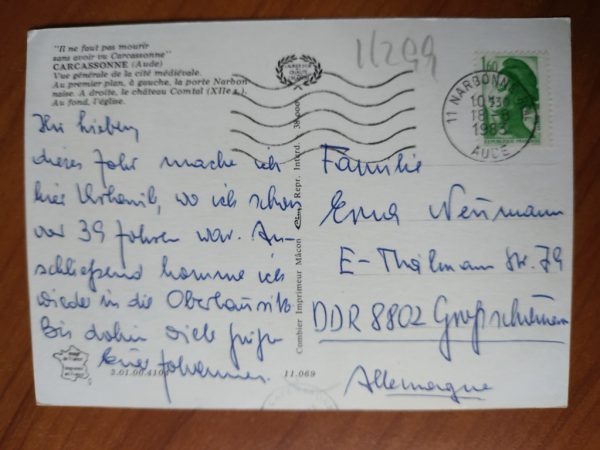 "Il ne faut pas mourir
sans avoir vu Carcassonne"
CARCASSONNE (Aude)
Vue générale de la cité médiévale.
Au premier plan, à gauche, la porte Narbon
naise. A droite, le château Comtal (XIIe s.).
Au fond, l'église.
11299
1,60
11 NARBONNE
10 H30
18 - 8
1983
AUDE
Ihr Lieben,
dieses Jahr mache ich
hier Urlaub, wo ich schon
vor 39 Jahren war. An-
schließend komme ich
wieder in die Oberlausitz.
Bis dahin viele Grüße
Euer Johannes.
Combier Imprimeur Mâcon
Repr. Interd.
Familie
Erna Neumann
E-Thälmann Str. 79
DDR 8802 Großschönau
Allemagne
11.069